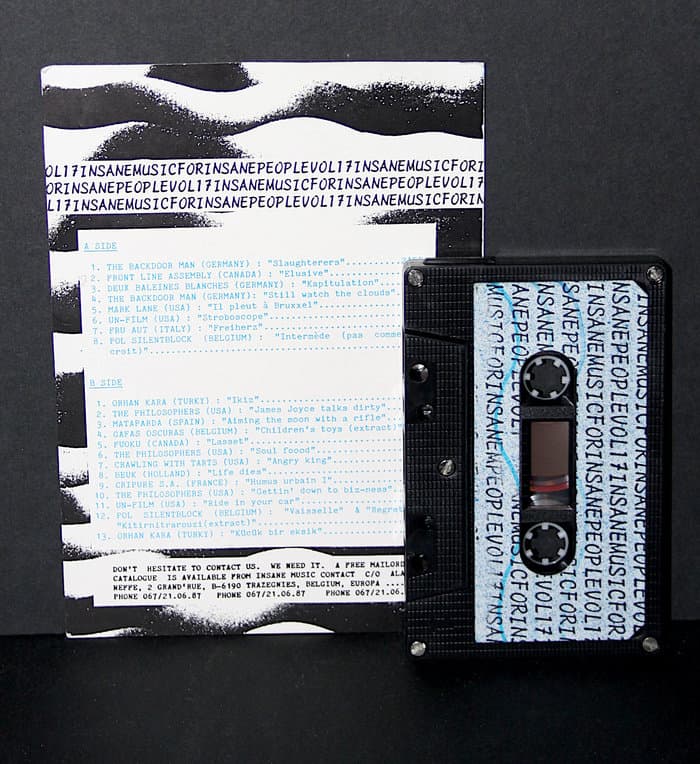 OL17INSANEMUSICFORINSANEPEOPLEVOL17INSANEMUSICFORI
ORINSANEPEOPLEVOL17INSANEMUSICFORINSANEPEOPLEVOL17
L17INSANEMUSICFORINSANEPEOPLEVOL17INSANEMUSICFORIN
A SIDE
1. THE BACKDOOR MAN (GERMANY) : "Slaughterers"....................
2. FRONT LINE ASSEMBLY (CANADA) : "Elusive"....................
3. DEUX BALEINES BLANCHES (GERMANY) : "Kapitulation"..........
4. THE BACKDOOR MAN (GERMANY): "Still watch the clouds".......
5. MARK LANE (USA) : "Il pleut à Bruxxel"....................
6. UN-FILM (USA) : "Stroboscope"....................
7. FRU AUT (ITALY) : "Freiherz"....................
8. POL SILENTBLOCK (BELGIUM) : "Intermède (pas comme
croit)"....................
B SIDE
1. ORHAN KARA (TURKY) : "Ikiz"....................
2. THE PHILOSOPHERS (USA) : "James Joyce talks dirty".......
3. MATAPARDA (SPAIN) : "Aiming the moon with a rifle".......
4. GAFAS OSCURAS (BELGIUM) : "Children's toys (extract)"
5. FUOKU (CANADA) : "Lasset"....................
6. THE PHILOSOPHERS (USA) : "Soul foood"....................
7. CRAWLING WITH TARTS (USA) : "Angry king"....................
8. BEUK (HOLLAND) : "Life dies"....................
9. CRIPURE S.A. (FRANCE) : "Humus urbain I"....................
10. THE PHILOSOPHERS (USA) : "Gettin' down to biz-ness".......
11. UN-FILM (USA) : "Ride in your car"....................
12. POL SILENTBLOCK (BELGIUM) : "Vaisselle" & "Regret
"Kitirnitrarouzi(extract)"....................
13. ORHAN KARA (TURKY) : "KUcUk bir eksik"....................
DON'T HESITATE TO CONTACT US. WE NEED IT. A FREE MAILORD
CATALOGUE IS AVAILABLE FROM INSANE MUSIC CONTACT C/O ALA
NEFFE, 2 GRAND'RUE, B-6190 TRAZEGNIES, BELGIUM, EUROPA ....
PHONE 067/21.06.87 PHONE 067/21.06.87 PHONE 067/21.06.
INSANEMUSICFORINSANEPEOPLEVOL17
NSANEPEOPLEVOL17INSANEMUSICFOR
INSANEMUSICFORINSANEPEOPLEVOL17
SANEPE
MUSICFORINSANEPEOPLEVOL17INSA